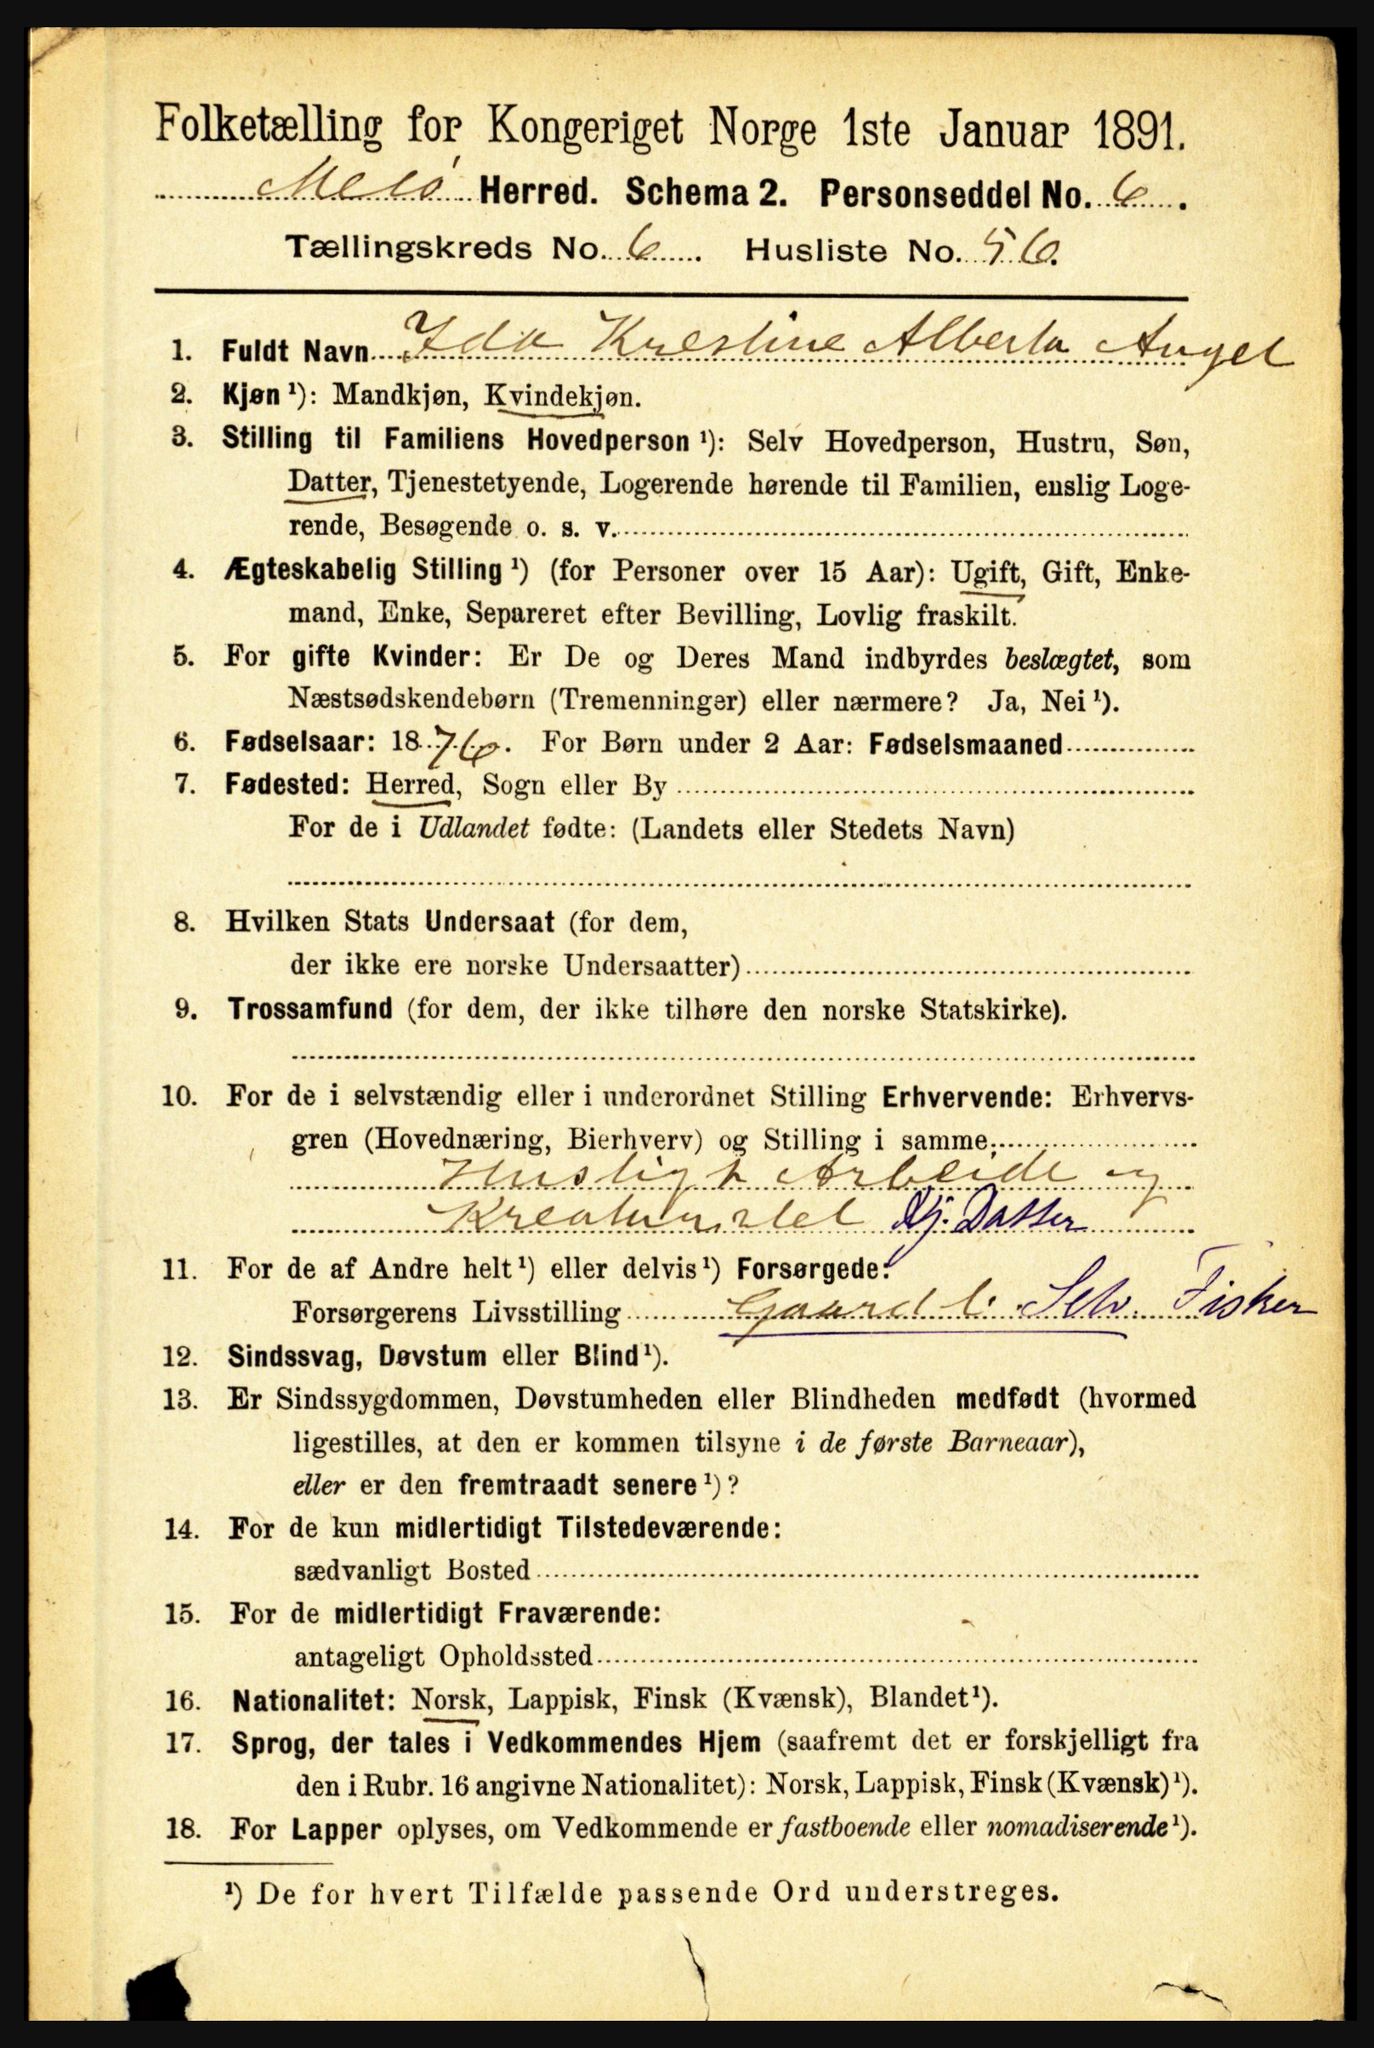 Folketælling for Kongeriget Norge 1ste Januar 1891.
Melö Herred. Schema 2. Personseddel No. 6.
Tællingskreds No. 6. Husliste No. 56.
1. Fuldt Navn Ida Krestine Alberta Angel
2. Kjøn ¹): Mandkjøn, Kvindekjøn.
3. Stilling til Familiens Hovedperson ¹): Selv Hovedperson, Hustru, Søn,
Datter, Tjenestetyende, Logerende hørende til Familien, enslig Loge-
rende, Besøgende o. s. v.
4. Ægteskabelig Stilling ¹) (for Personer over 15 Aar): Ugift, Gift, Enke-
mand, Enke, Separeret efter Bevilling, Lovlig fraskilt.
5. For gifte Kvinder: Er De og Deres Mand indbyrdes beslægtet, som
Næstsødskendebørn (Tremenninger) eller nærmere? Ja, Nei ¹).
6. Fødselsaar: 1876. For Børn under 2 Aar: Fødselsmaaned
7. Fødested: Herred, Sogn eller By
For de i Udlandet fødte: (Landets eller Stedets Navn)
8. Hvilken Stats Undersaat (for dem,
der ikke ere norske Undersaatter)
9. Trossamfund (for dem, der ikke tilhøre den norske Statskirke).
10. For de i selvstændig eller i underordnet Stilling Erhvervende: Erhvervs-
gren (Hovednæring, Bierhverv) og Stilling i samme
Husligt Arbeide og
Kreaturstel Hj. Datter
11. For de af Andre helt ¹) eller delvis ¹) Forsørgede:
Forsørgerens Livsstilling Gaardb. Selv. Fisker
12. Sindssvag, Døvstum eller Blind ¹).
13. Er Sindssygdommen, Døvstumheden eller Blindheden medfødt (hvormed
ligestilles, at den er kommen tilsyne i de første Barneaar),
eller er den fremtraadt senere ¹)?
14. For de kun midlertidigt Tilstedeværende:
sædvanligt Bosted
15. For de midlertidigt Fraværende:
antageligt Opholdssted
16. Nationalitet: Norsk, Lappisk, Finsk (Kvænsk), Blandet ¹).
17. Sprog, der tales i Vedkommendes Hjem (saafremt det er forskjelligt fra
den i Rubr. 16 angivne Nationalitet): Norsk, Lappisk, Finsk (Kvænsk) ¹).
18. For Lapper oplyses, om Vedkommende er fastboende eller nomadiserende ¹).
¹) De for hvert Tilfælde passende Ord understreges.